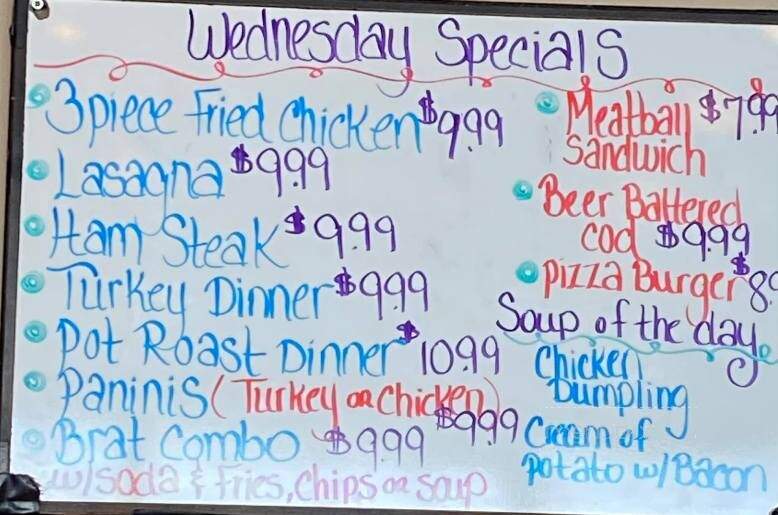 Wednesday Specials
3 piece Fried Chicken $9.99
Lasagna $9.99
Ham Steak $9.99
Turkey Dinner $9.99
Pot Roast Dinner $10.99
Paninis (Turkey or Chicken)
$9.99
Brat Combo $9.99
w/ Soda & Fries, Chips or Soup
Meatball $7.99
Sandwich
Beer Battered
Cod $9.99
Pizza Burger $8
Soup of the day
Chicken
Dumpling
Cream of
Potato w/ Bacon